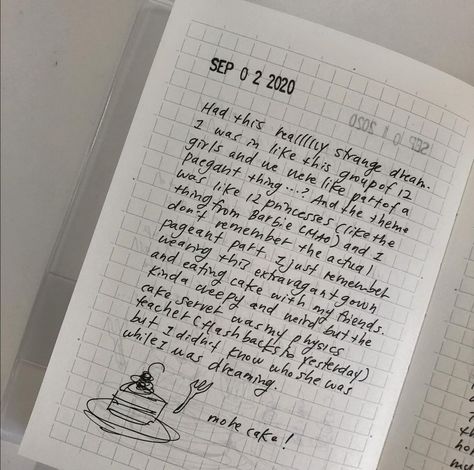 SEP 02 2020
Had this realllllly strange dream.
I was in like this group of 12
girls and we were like part of a
pageant thing...? And the theme
was like 12 princesses (like the
thing from Barbie LMAO) and I
don't remember the actual
pageant part. I just remember
wearing this extravagant gown
and eating cake with my friends.
Kinda creepy and weird but the
cake server was my physics
teacher (flashbacks to yesterday)
but I didn't know who she was
while I was dreaming.
more cake!
SEP 01 2020